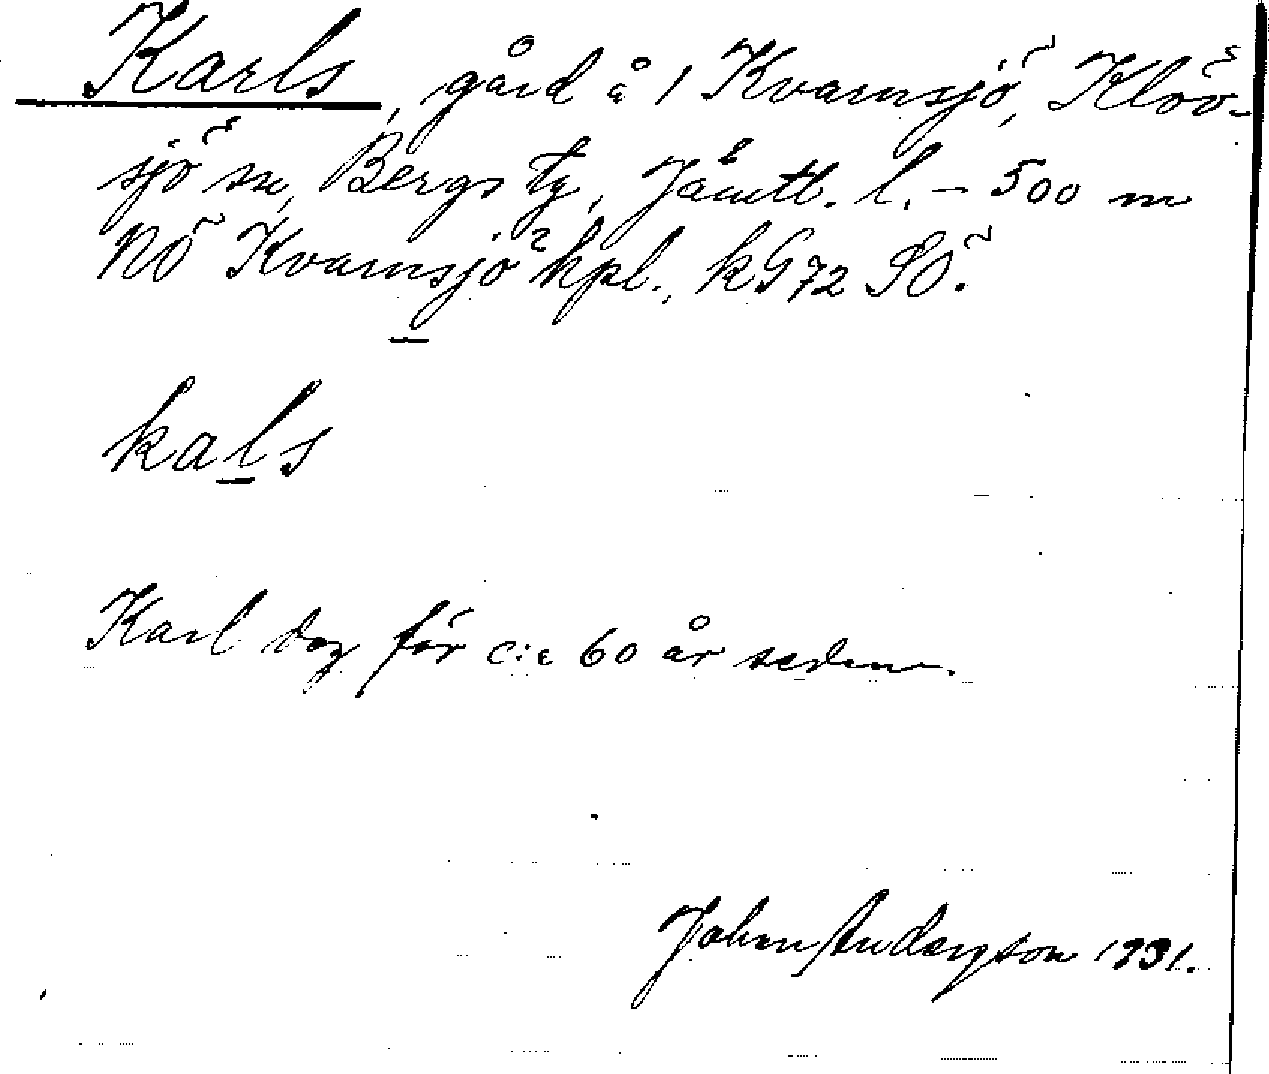 Karls, gård å 1 Kvarnsjö, Klöv-
sjö sn, Bergs tg, Jämtl. l. – 500 m
NÖ Kvarnsjö hpl., kG72 SÖ.
kals
Karl dog för c:a 60 år sedan.
Johan Anderzson 1931.